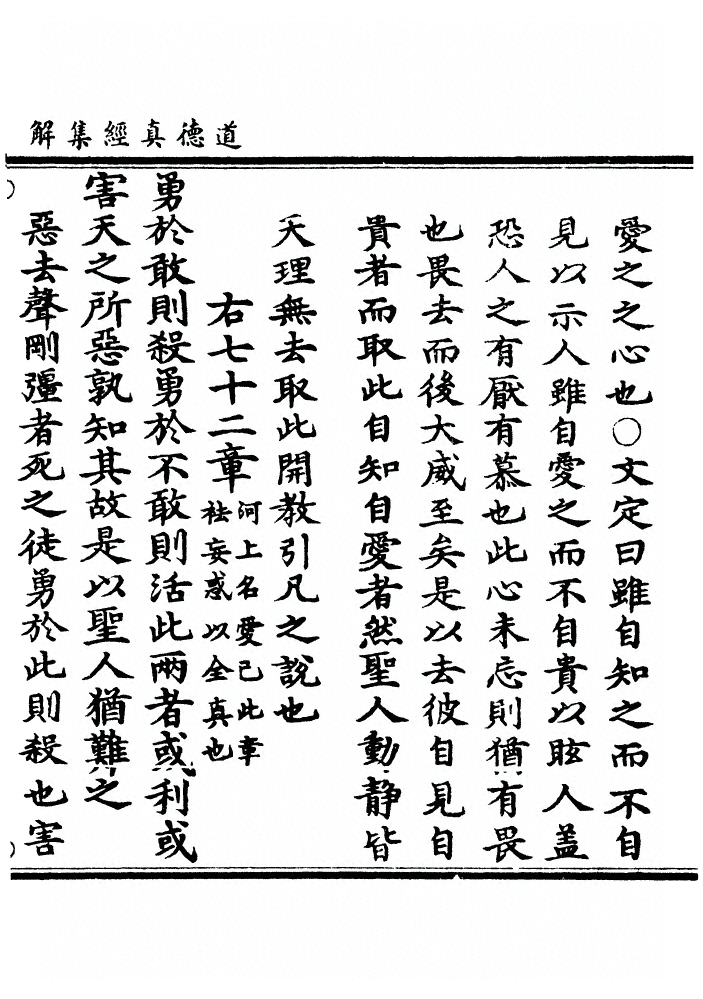 道德真經集解
愛之之心也○文定曰雖自知之而不自
見以示人雖自愛之而不自貴以眩人盖
恐人之有厭有慕也此心未忘則猶有畏
也畏去而後大威至矣是以去彼自見自
貴者而取此自知自愛者然聖人動靜皆
天理無去取此開教引凡之說也
右七十二章
河上名愛己此章
袪妄惑以全真也
勇於敢則殺勇於不敢則活此兩者或利或
害天之所惡孰知其故是以聖人猶難之
惡去聲剛彊者死之徒勇於此則殺也害